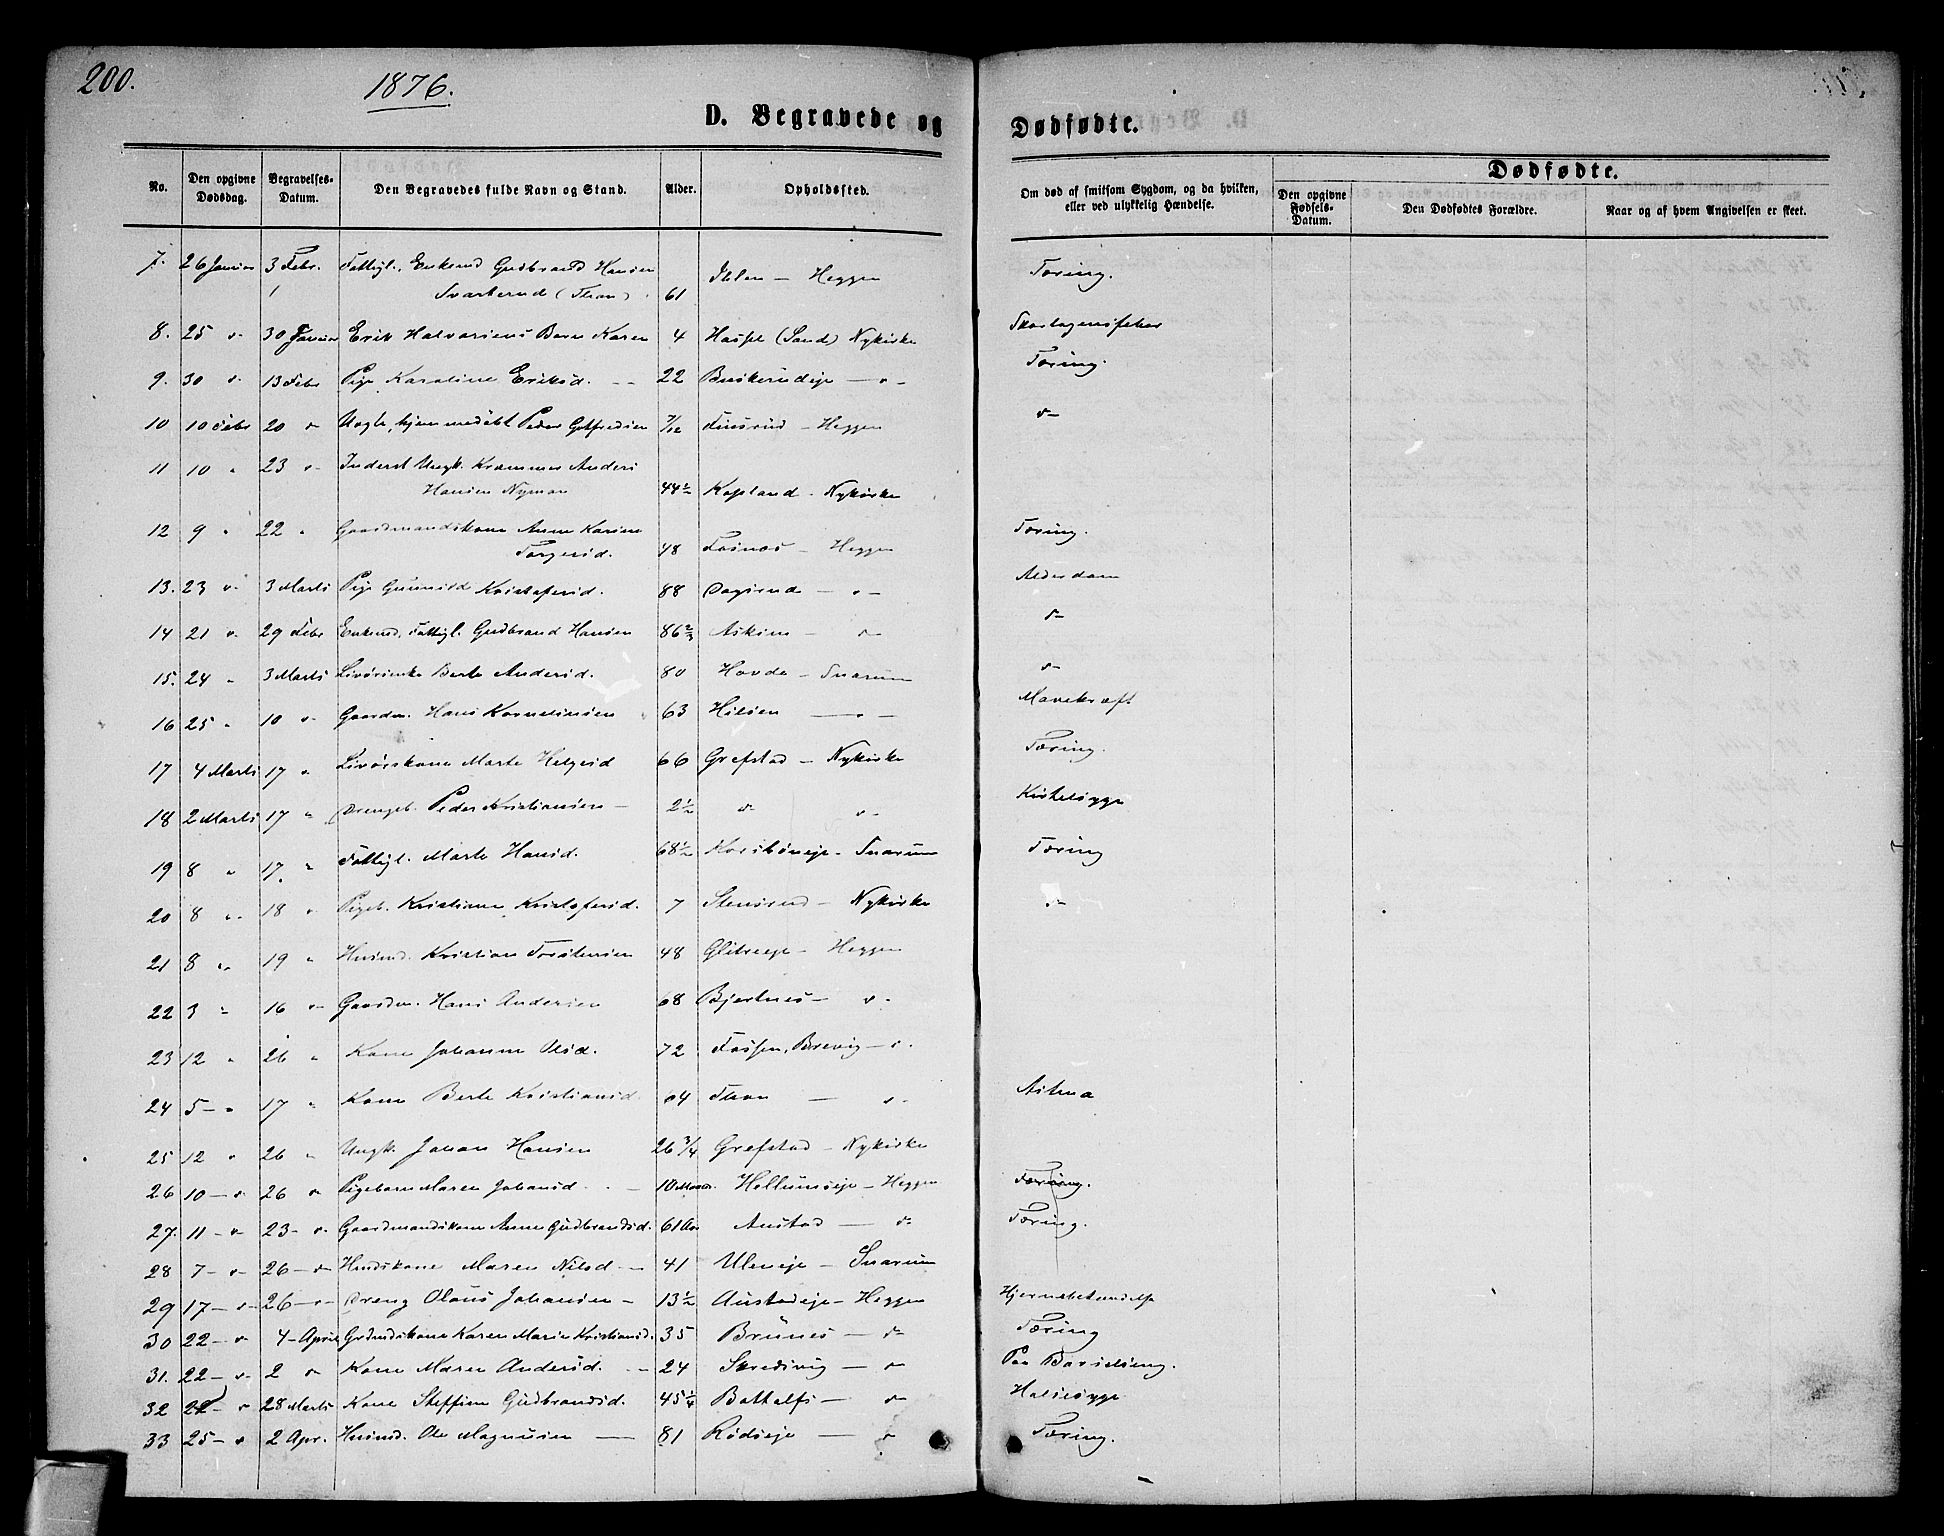 200.
1876.
D. Begravede og Dødfødte.
No. Den opgivne Dødsdag. Begravelses-Datum. Den Begravedes fulde Navn og Stand. Alder. Opholdssted. Om død af smitsom Sygdom, og da hvilken, eller ved ulykkelig Hændelse.
Dødfødte.
Den opgivne Fødsels-Datum. Den Dødfødtes Forældre. Naar og af hvem Angivelsen er skeet.
7. 26 Januar 3 Febr. Fattigl. Enkemd Gudbrand Hansen Heggen Tæring.
Svarterud (Thon) 61
8. 25 " 30 Januar Erik Halvorsens Barn Karen 4 Haffel (Sand) Nykirke Skarlagensfeber
9. 30 " 13 Febr Pige Karoline Eriksd. 22 Buskerudeje — " Tæring.
10 10 Febr 20 " Uægte, hjemmedøbt Peder Gotfredsen 7/12 Fursrud - Heggen "
11 10 " 23 " Inderst Ungk. Kræmmer Anders
Hansen Nyman 44½ Kopland - Nykirke
12 9 " 22 " Gaardmandskone Anne Karine Tæring.
Torgersd. 48 Fosnæs - Heggen
13. 23 " 3 Marts Pige Gunild Kristofersd. 88 Dagsrud — " Alderdom
14 21 " 29 Febr Enkemd. Fattigl. Gudbrand Hansen 86⅔ Askim — " "
15. 24 " 3 Marts Livørenke Berte Andersd. 80 Hovde - Snarum "
16 25 " 10 " Gaardm. Hans Korneliusen 63 Hilsen — " Mavekræft
17 4 Marts 17 " Livørskone Marte Helgesd 66 Grefstad - Nykirke Tæring.
18 2 Marts 17 " Drengeb. Peder Kristiansen 2½ " " Kirtelsyge
19 8 " 17 " Fattigl. Marte Hansd. 68½ Korsbøneje - Snarum Tæring
20 8 " 18 " Pigeb. Kristiane Kristofersd. 7 Stensrud - Nykirke "
21 8 " 19 " Husmd. Kristian Torstensen 48 Glitreeje - Heggen
22 3 " 16 " Gaardm. Hans Andersen 68 Bjertnes - "
23 12 " 26 " Kone Johanne Olsd. 72 Fossen, Brevig - "
24 5 - " 17 " Kone Berte Kristiansd. 64 Thon — " Astma
25 12 " 26 " Ungk. Johan Hansen 26 3/4 Grefstad - Nykirke
26 10 — " 26 " Pigebarn Maren Johansd. - 10 Maan. Hollumseje - Heggen Tæring.
27. 11 - " 23 - " Gaardmandskone Anne Gudbrandsd. 61 Aar Austad — " Tæring.
28 7 - " 26 - " Husmdskone Maren Nilsd - 41 Uleneje - Snarum
29 17 - " 26 - " Dreng Olaus Johansen - 13½ Austadeje - Heggen Hjernebetændelse
30 22 - " 4 - April Grdmdskone Karen Marie Kristiansd. 35 Brünes - " Tæring
31. 22 - " 2 " Kone Maren Andersd. - 24 Skredsvig — " Paa Barselseng.
32 22 - " 28 Marts Kone Steffine Gudbrandsd. 45¼ Bottolfs - " Halssyge
33 25 - " 2 Apr. Husmd. Ole Magnusen — 81 Rödseje — " Tæring.